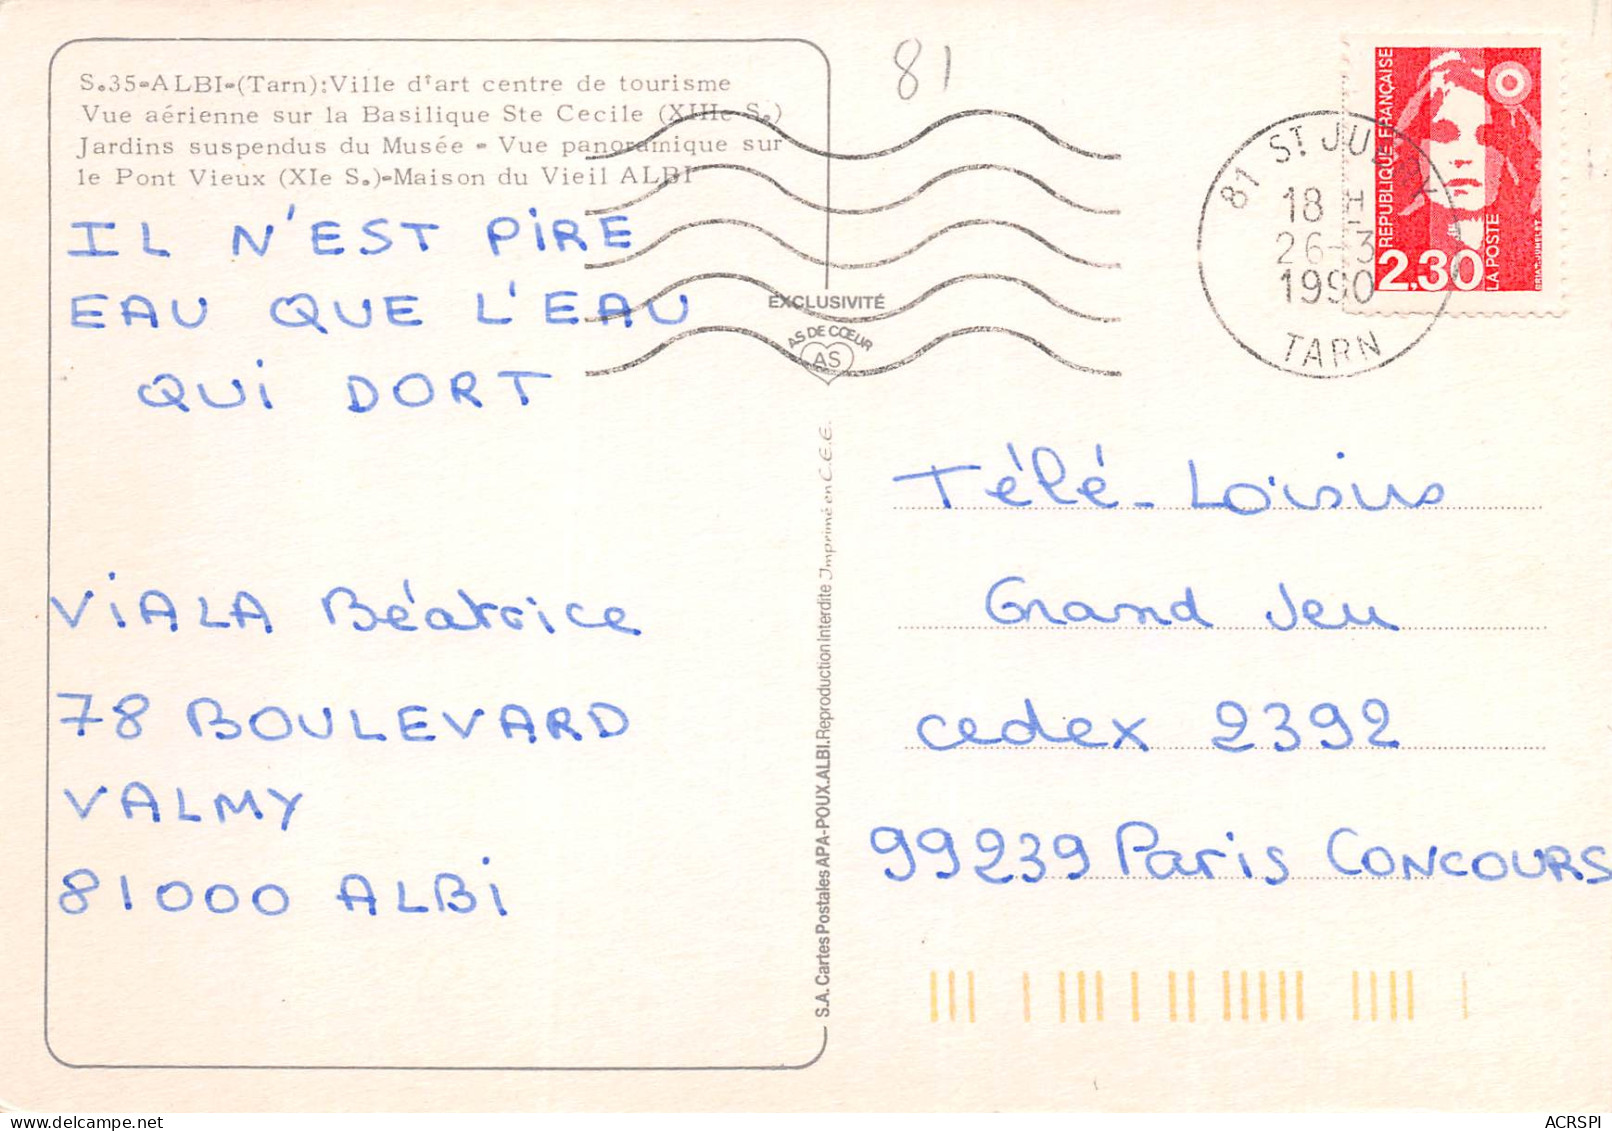 S.35-ALBI-(Tarn):Ville d'art centre de tourisme
Vue aérienne sur la Basilique Ste Cecile (XIIIe S.)
Jardins suspendus du Musée - Vue panoramique sur
le Pont Vieux (XIe S.)-Maison du Vieil ALBI
IL N'EST PIRE
EAU QUE L'EAU
QUI DORT
VIALA Béatrice
78 BOULEVARD
VALMY
81000 ALBI
81
EXCLUSIVITÉ
AS DE CŒUR
AS
S.A. Cartes Postales APA-POUX.ALBI.Reproduction Interdite Imprimé en C.E.E.
81 ST JUERY
18 H
26-3
1990
TARN
REPUBLIQUE FRANÇAISE
2,30
LA POSTE
Télé-Loisirs
Grand Jeu
cedex 2392
99239 Paris CONCOURS
ACRSPI